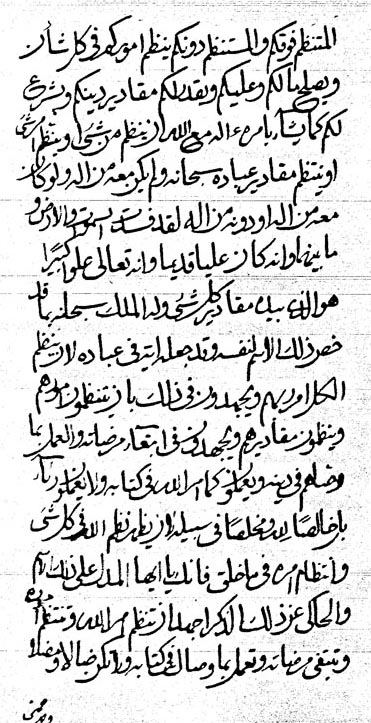 المتنظم فوقكم والمستنظم دونكم ينظم اموركم فى كل شأن
ويصلح مالكم وعليكم ويقدر لكم مقادير دينكم ويشرع
لكم كما يشاء بامره ءاله مع الله ان ينتظم من شئ او ينتظم امر شئ
او ينتظم مقادير عباده سبحانه ولم يكن معه من اله ولو كان
معه من اله او دونه من اله لقد فسدت السموات والارض و
ما بينهما وانه كان عليا قديما وانه تعالى علوا كبيرا
هو الذى بيده مقادير كل شئ وله الملك سبحانه بما قد
خص ذلك الاسم لنفسه وقد جعله اية فى عباده لان ينظم
الكل امور بهم ويجهدون فى ذلك بان ينتظمون امورهم
وينظمون مقاديرهم ويجهدون فى ابتغاء مرضاته والعمل بما
وصاهم فى دينه ويعملون كما امر الله فى كتابه ولا يعملون رياء
بل خالصا لله ومخلصا فى سبيله لان يظهر نظم الله فى كل شئ
وانتظام امره فى ما خلق فانك يا ايها المدل على ذلك الاسم
والحاكى عن ذلك الذكر اجهد ان تنتظم امر الله وتنتظم امره
وتبتغى مرضاته وتعمل بما وصاك فى كتابه ولا تكن ضالا ومضلا